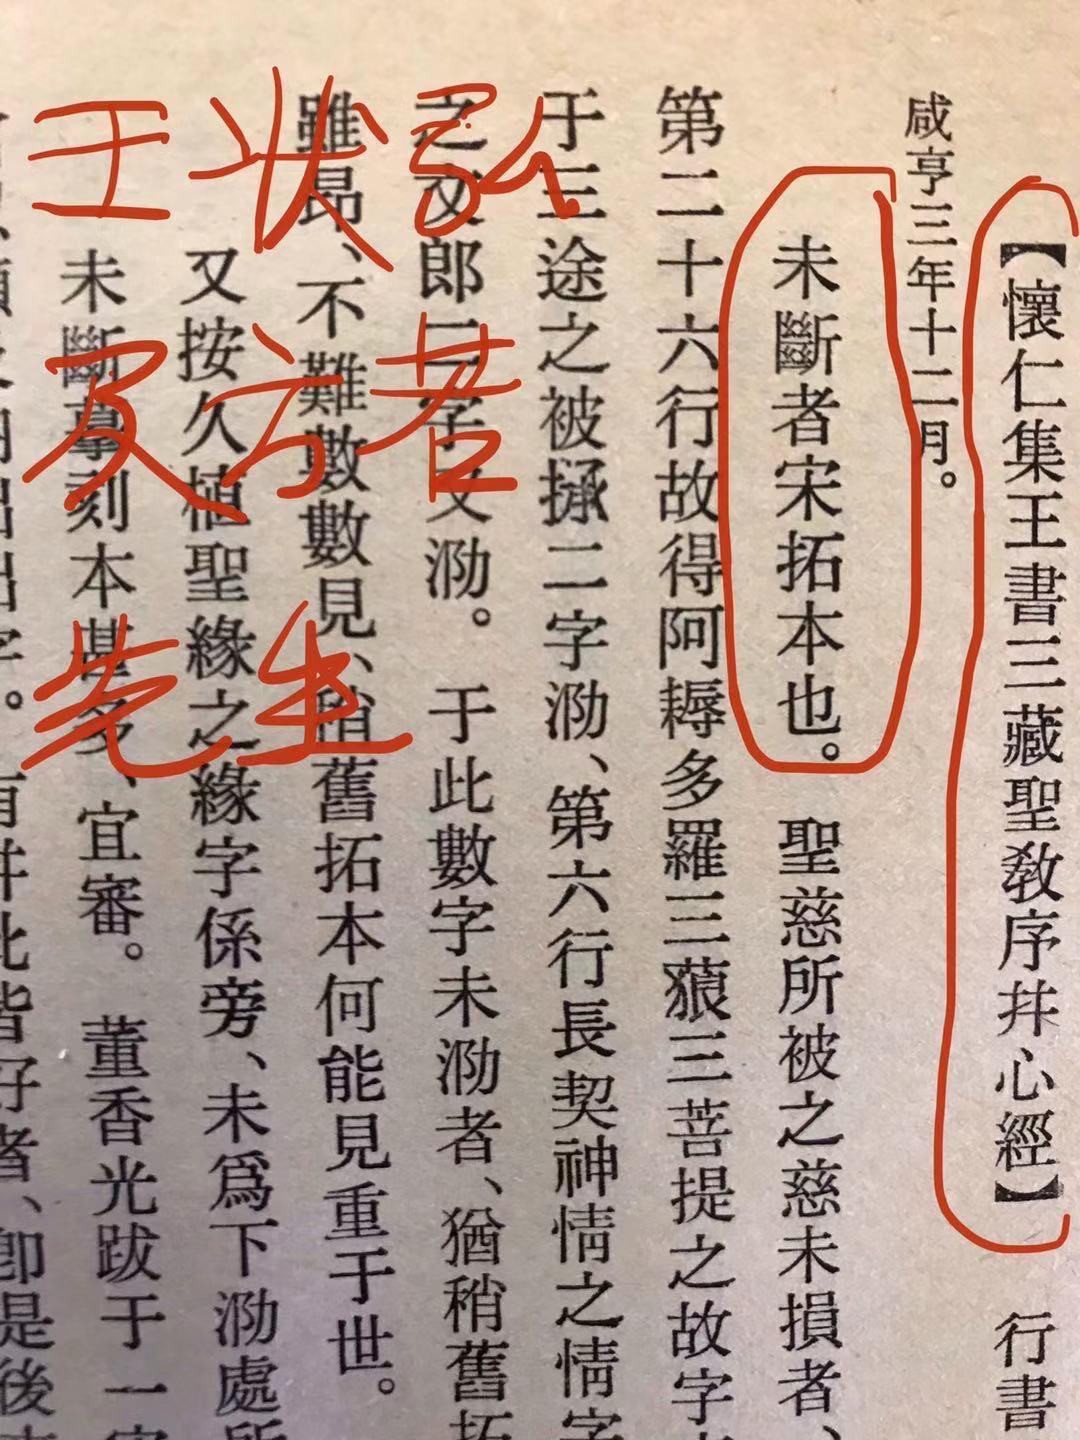 【懷仁集王書三藏聖教序幷心經】　行書
咸亨三年十二月。
未斷者宋拓本也。　聖慈所被之慈未損者、
第二十六行故得阿耨多羅三藐三菩提之故字
于三途之被拯二字泐、第六行長契神情之情字
之文郎二字又泐。　于此數字未泐者、猶稍舊拓
雖昂、不難數數見、稍舊拓本何能見重于世。
又按久植聖緣之緣字係旁、未爲下泐處所
未斷摹刻本甚多、宜審。　董香光跋于一
皆好者、卽是後
王状弘
及方若
先生